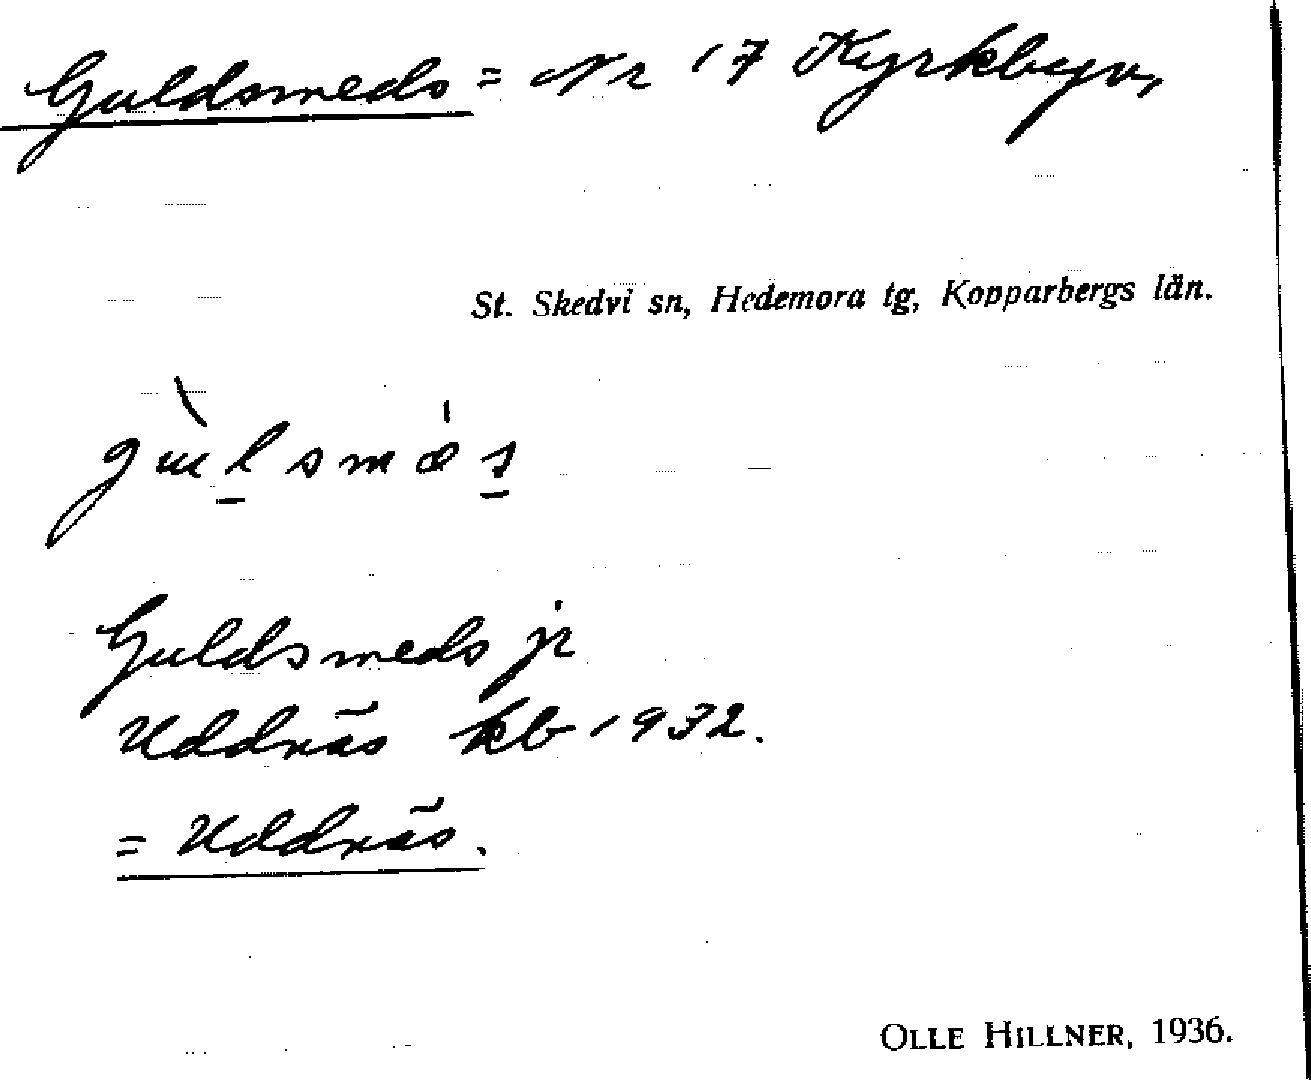 Guldsmeds = Nr 17 Kyrkbyn,
St. Skedvi sn, Hedemora tg, Kopparbergs län.
gulsmæs
Guldsmeds jr
Uddnäs kb 1932.
= Uddnäs.
OLLE HILLNER, 1936.